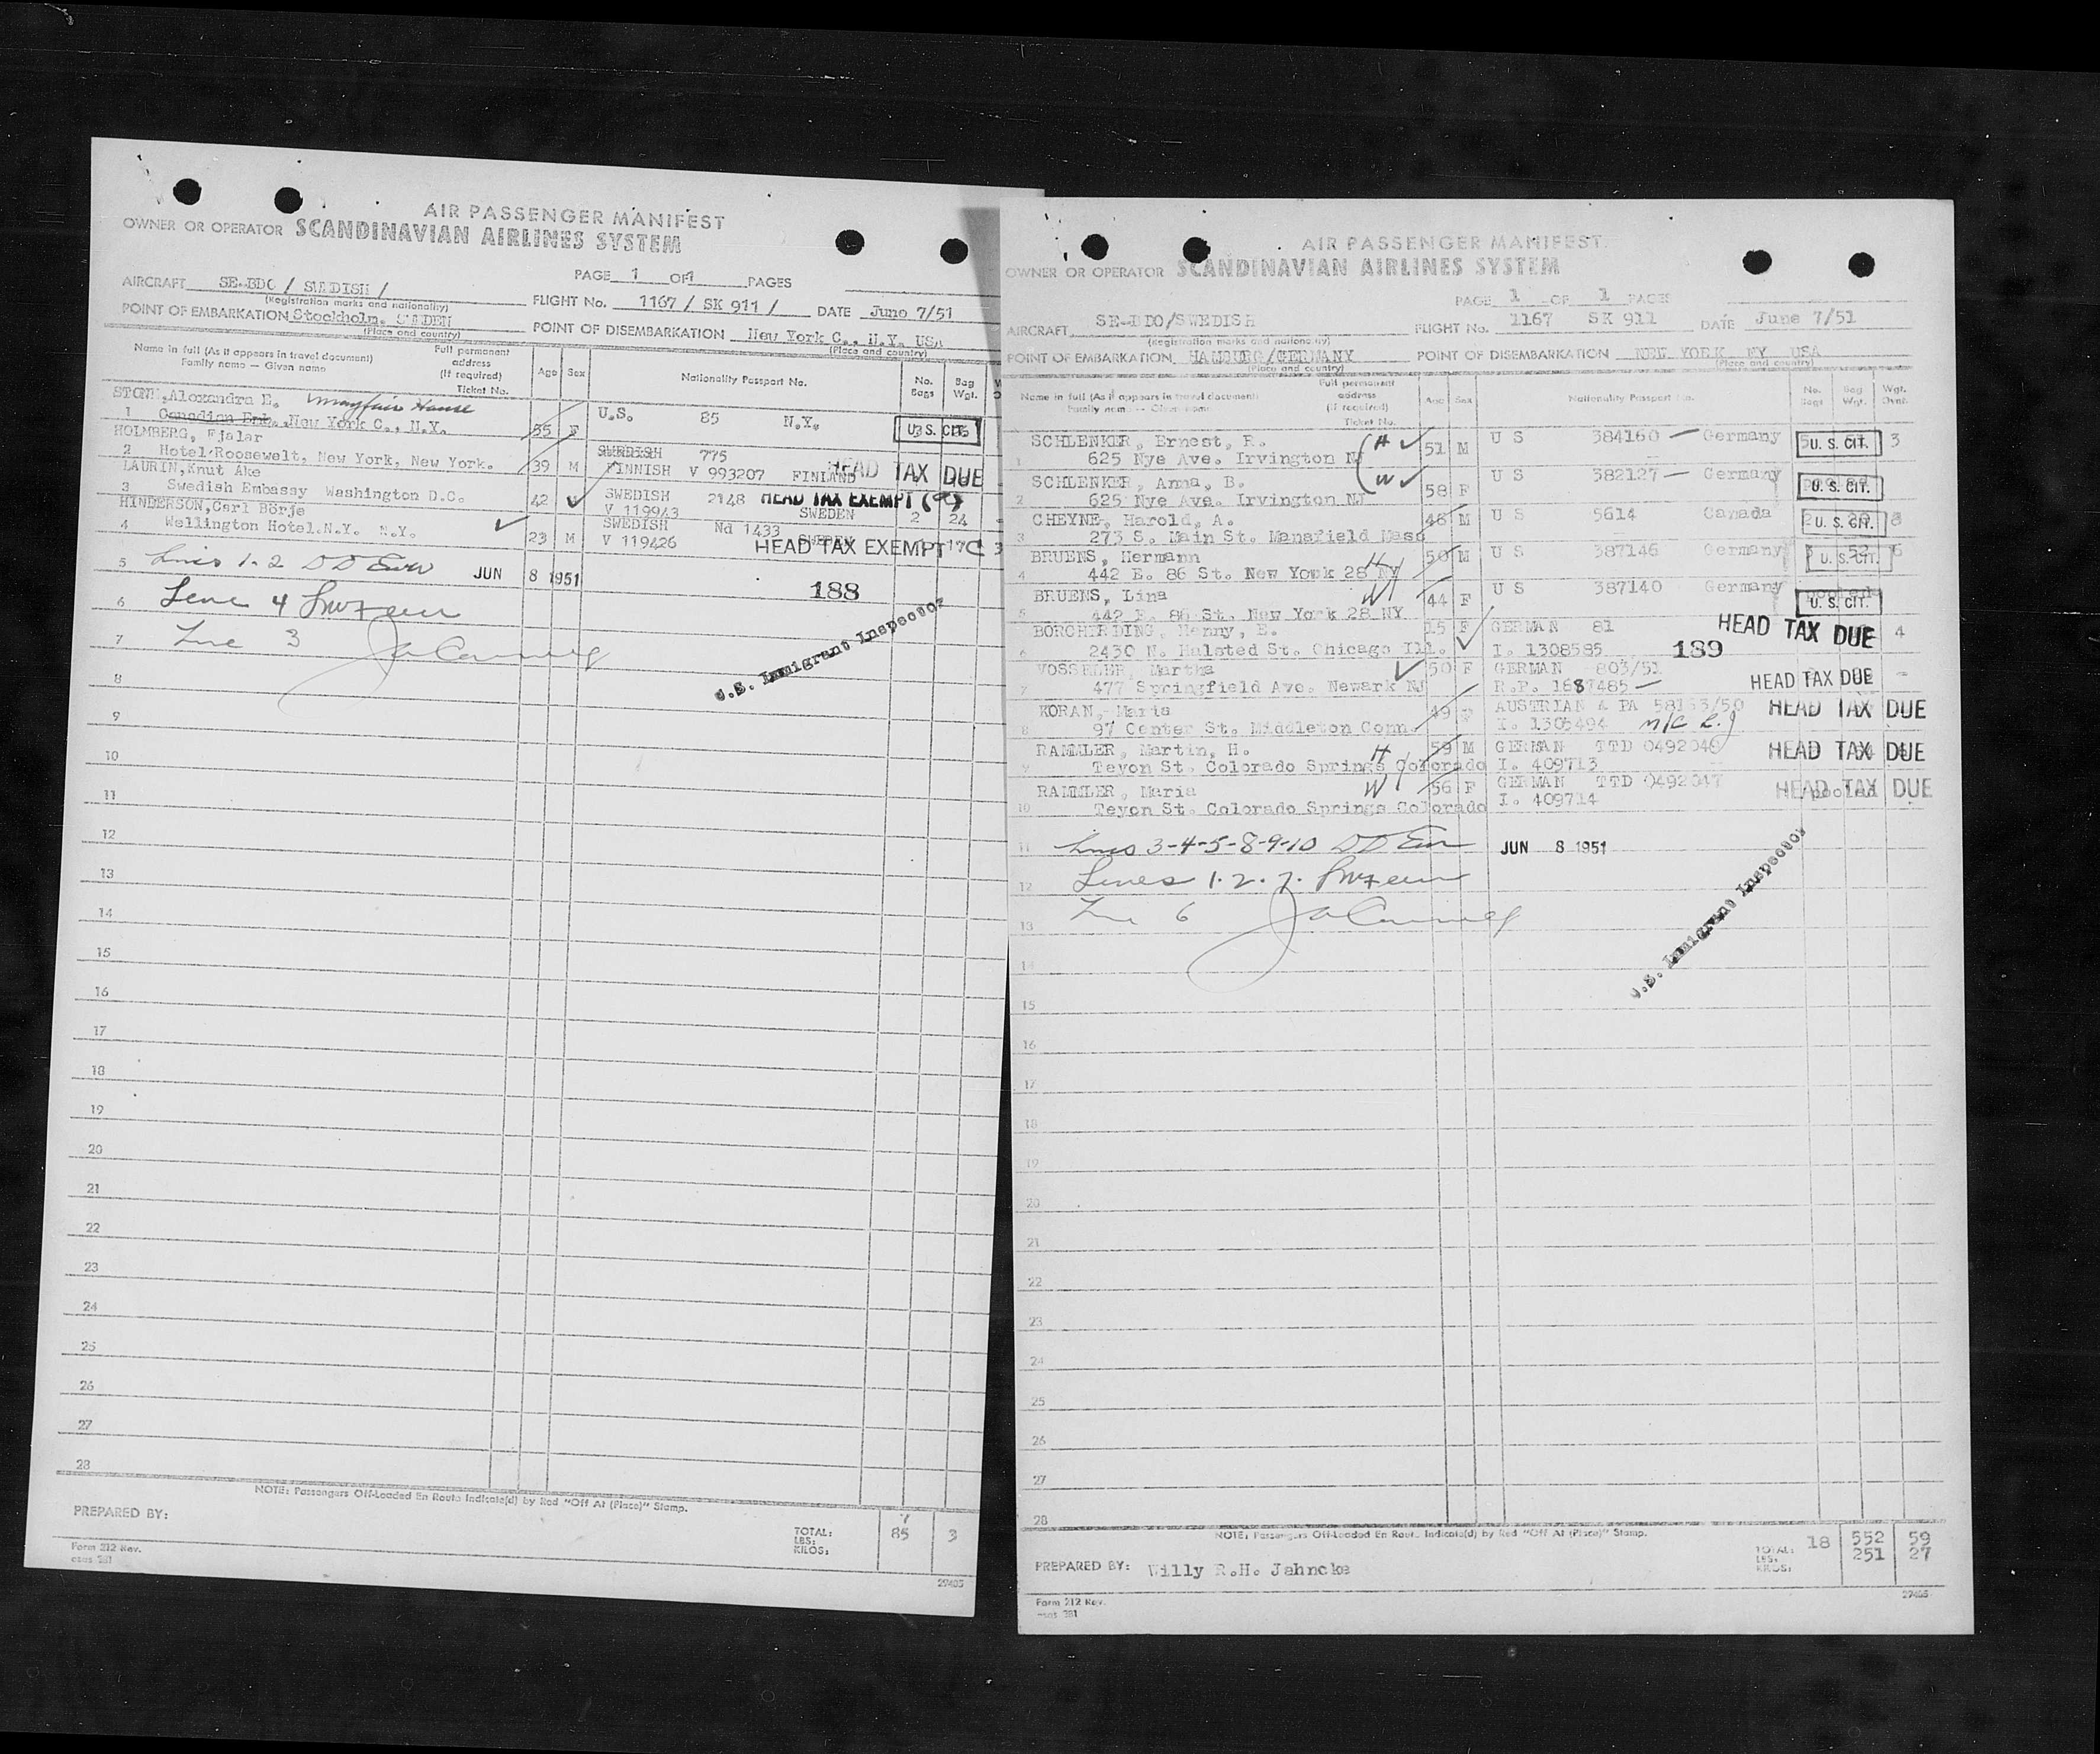 AIR PASSENGER MANIFEST
OWNER OR OPERATOR SCANDINAVIAN AIRLINES SYSTEM
PAGE 1 OF 1 PAGES
AIRCRAFT SE-BDO / SWEDISH /
(Registration marks and nationality)
FLIGHT No. 1167 / SK 911 / DATE June 7/51
POINT OF EMBARKATION Stockholm. SWEDEN
(Place and country)
POINT OF DISEMBARKATION New York C., N.Y. USA
(Place and country)
Name in full (As it appears in travel document)
Family name — Given name
Full permanent address (If required)
Ticket No.
Age Sex Nationality Passport No. No. Bags Bag Wgt.
STONE, Alexandra E. Mayfair House
1 Canadian Emb., New York C., N.Y. 55 F U.S. 85 N.Y. U.S. CIT.
HOLMBERG, Fjalar
2 Hotel Roosewelt, New York, New York. 39 M SWEDISH 775
FINNISH V 993207 FINLAND HEAD TAX DUE
LAURIN, Knut Ake
3 Swedish Embassy Washington D.C. 42 SWEDISH 2148 HEAD TAX EXEMPT
V 119943 SWEDEN 2 24
HINDERSON, Carl Börje
4 Wellington Hotel. N.Y. N.Y. 23 M SWEDISH Nd 1433
V 119426 SWEDEN HEAD TAX EXEMPT
5 Lines 1-2 JUN 8 1951
188
6 Line 4
7 Line 3
U.S. Immigrant Inspector
8
9
10
11
12
13
14
15
16
17
18
19
20
21
22
23
24
25
26
27
28
NOTE: Passengers Off-Loaded En Route Indicate(d) by Red "Off At (Place)" Stamp.
PREPARED BY:
TOTAL: 7
LBS: 85 3
KILOS:
Form 212 Rev.
27405
AIR PASSENGER MANIFEST
OWNER OR OPERATOR SCANDINAVIAN AIRLINES SYSTEM
PAGE 1 OF 1 PAGES
AIRCRAFT SE-BDO/SWEDISH
(Registration marks and nationality)
FLIGHT No. 1167 SK 911 DATE June 7/51
POINT OF EMBARKATION HAMBURG/GERMANY
(Place and country)
POINT OF DISEMBARKATION NEW YORK NY USA
(Place and country)
Name in full (As it appears in travel document)
Family name — Given name
Full permanent address (If required)
Ticket No.
Age Sex Nationality Passport No. No. Bags Bag Wgt. Wgt. Ovrt.
SCHLENKER, Ernest, R. H
1 625 Nye Ave. Irvington NJ 51 M U S 384160 Germany U. S. CIT. 3
SCHLENKER, Anna, B. W
2 625 Nye Ave. Irvington NJ 58 F U S 382127 Germany U. S. CIT.
CHEYNE, Harold, A.
3 273 S. Main St. Mansfield Mass 46 M U S 5614 Canada U. S. CIT. 8
BRUENS, Hermann H
4 442 E. 86 St. New York 28 NY 50 M U S 387146 Germany U. S. CIT. 6
BRUENS, Lina W
5 442 E. 86 St. New York 28 NY 44 F U S 387140 Germany U. S. CIT.
BORCHERDING, Henny, E.
6 2430 N. Halsted St. Chicago Ill. 15 F GERMAN 81 HEAD TAX DUE 4
I. 1308585 189
VOSSELER, Martha
7 477 Springfield Ave. Newark NJ 50 F GERMAN 803/51
R.P. 1687485 HEAD TAX DUE
KORAN, Maria
8 97 Center St. Middleton Conn. 49 F AUSTRIAN A PA 58153/50 HEAD TAX DUE
I. 1305494
RAMMLER, Martin, H. H
9 Teyon St. Colorado Springs Colorado 59 M GERMAN TTD 0492046 HEAD TAX DUE
I. 409713
RAMMLER, Maria W
10 Teyon St. Colorado Springs Colorado 56 F GERMAN TTD 0492047 HEAD TAX DUE
I. 409714
11 Lines 3-4-5-8-9-10 JUN 8 1951
12 Lines 1.2.7.
13 Line 6
U.S. Immigrant Inspector
14
15
16
17
18
19
20
21
22
23
24
25
26
27
28
NOTE: Passengers Off-Loaded En Route Indicate(d) by Red "Off At (Place)" Stamp.
PREPARED BY: Willy R.H. Jahncke
TOTAL: 18
LBS: 552 59
KILOS: 251 27
Form 212 Rev.
27405